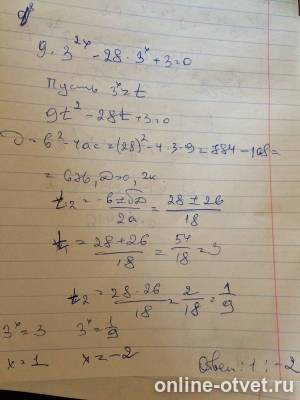 9·3^2x - 28·3^x + 3 = 0
Пусть 3^x = t
9t² - 28t + 3 = 0
Д = b² - 4ac = (28)² - 4·3·9 = 784 - 108 =
= 676, Д>0, 2к
t₂ = -b ± √Д / 2a = 28 ± 26 / 18
t₁ = 28 + 26 / 18 = 54 / 18 = 3
t₂ = 28 - 26 / 18 = 2 / 18 = 1 / 9
3^x = 3 3^x = 1/9
x = 1 x = -2 Ответ: 1; -2
online-otvet.ru